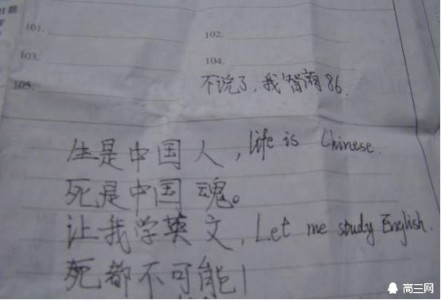 101.
102.
103.
104.
105.
不说了,我智商86.
生是中国人,life is Chinese.
死是中国魂。
让我学英文,Let me study English.
死都不可能!
高三网